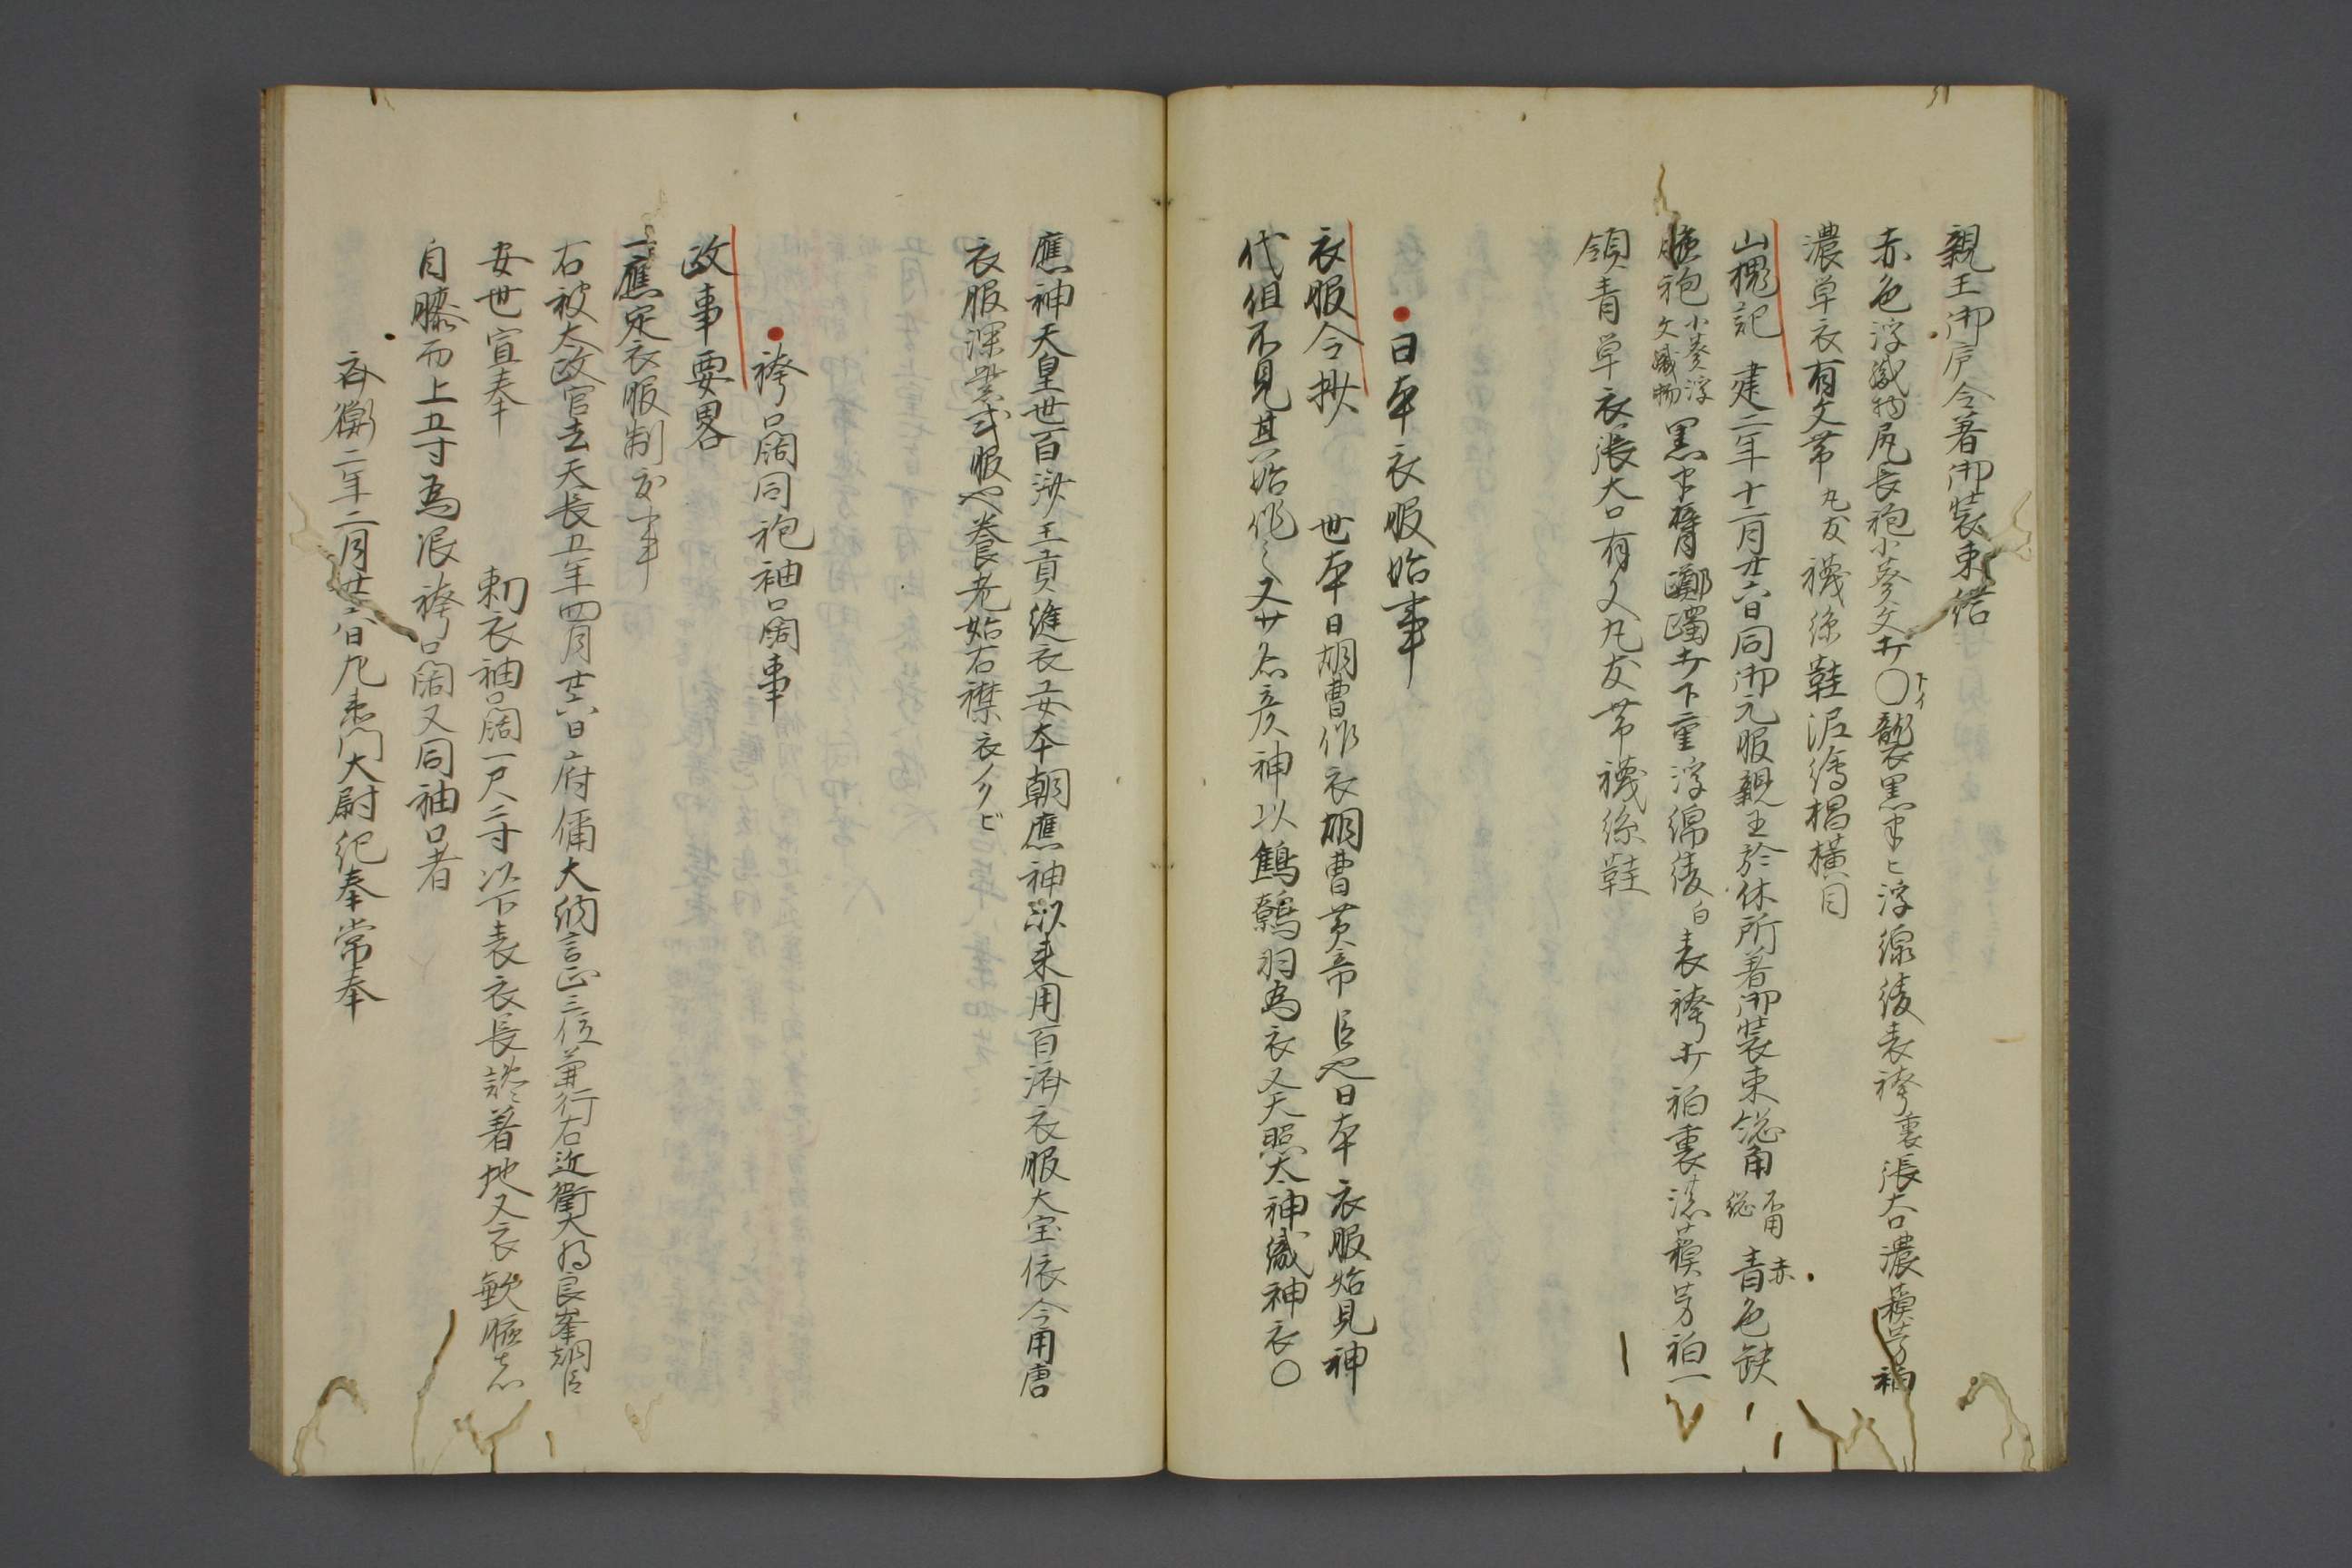 親王御戸令着御装束給
赤色浮織物尻長袍小葵文打〇襲黒半ヒ浮線綾表袴裏張大口濃蘓芳袙
濃単衣有文帯丸友襪絲鞋泥絵榻横目
山槐記 建二年十二月廿六日同御元服親王於休所着御装束総角不用総青赤色缺
腋袍小葵浮文織物黒半臂躑躅打下重浮綿綾白表袴打袙裏濃蘓芳袙一
領青単衣張大口有文丸友帯襪絲鞋
日本衣服始事
衣服令抄 世本曰胡曹作衣胡曹黄帝臣也日本衣服始見神
代但不見其始作之又廿名彦神以鷦鷯羽為衣又天照太神織神衣〇
應神天皇世百済王貢縫衣女本朝應神以来用百済衣服大宝依令用唐
衣服深紫弐服也養老始右襟衣
袴口闊同袍袖口闊事
政事要畧
一應定衣服制度事
右被太政官去天長五年四月廿六日府偁大納言正三位兼行右近衛大将良峯朝臣
安世宣奉
勅衣袖口闊一尺二寸以下表衣長纔着地又衣缺腋者
自膝而上五寸為限袴口闊又同袖口者
斉衡二年二月廿六日左衛門大尉紀奉常奉